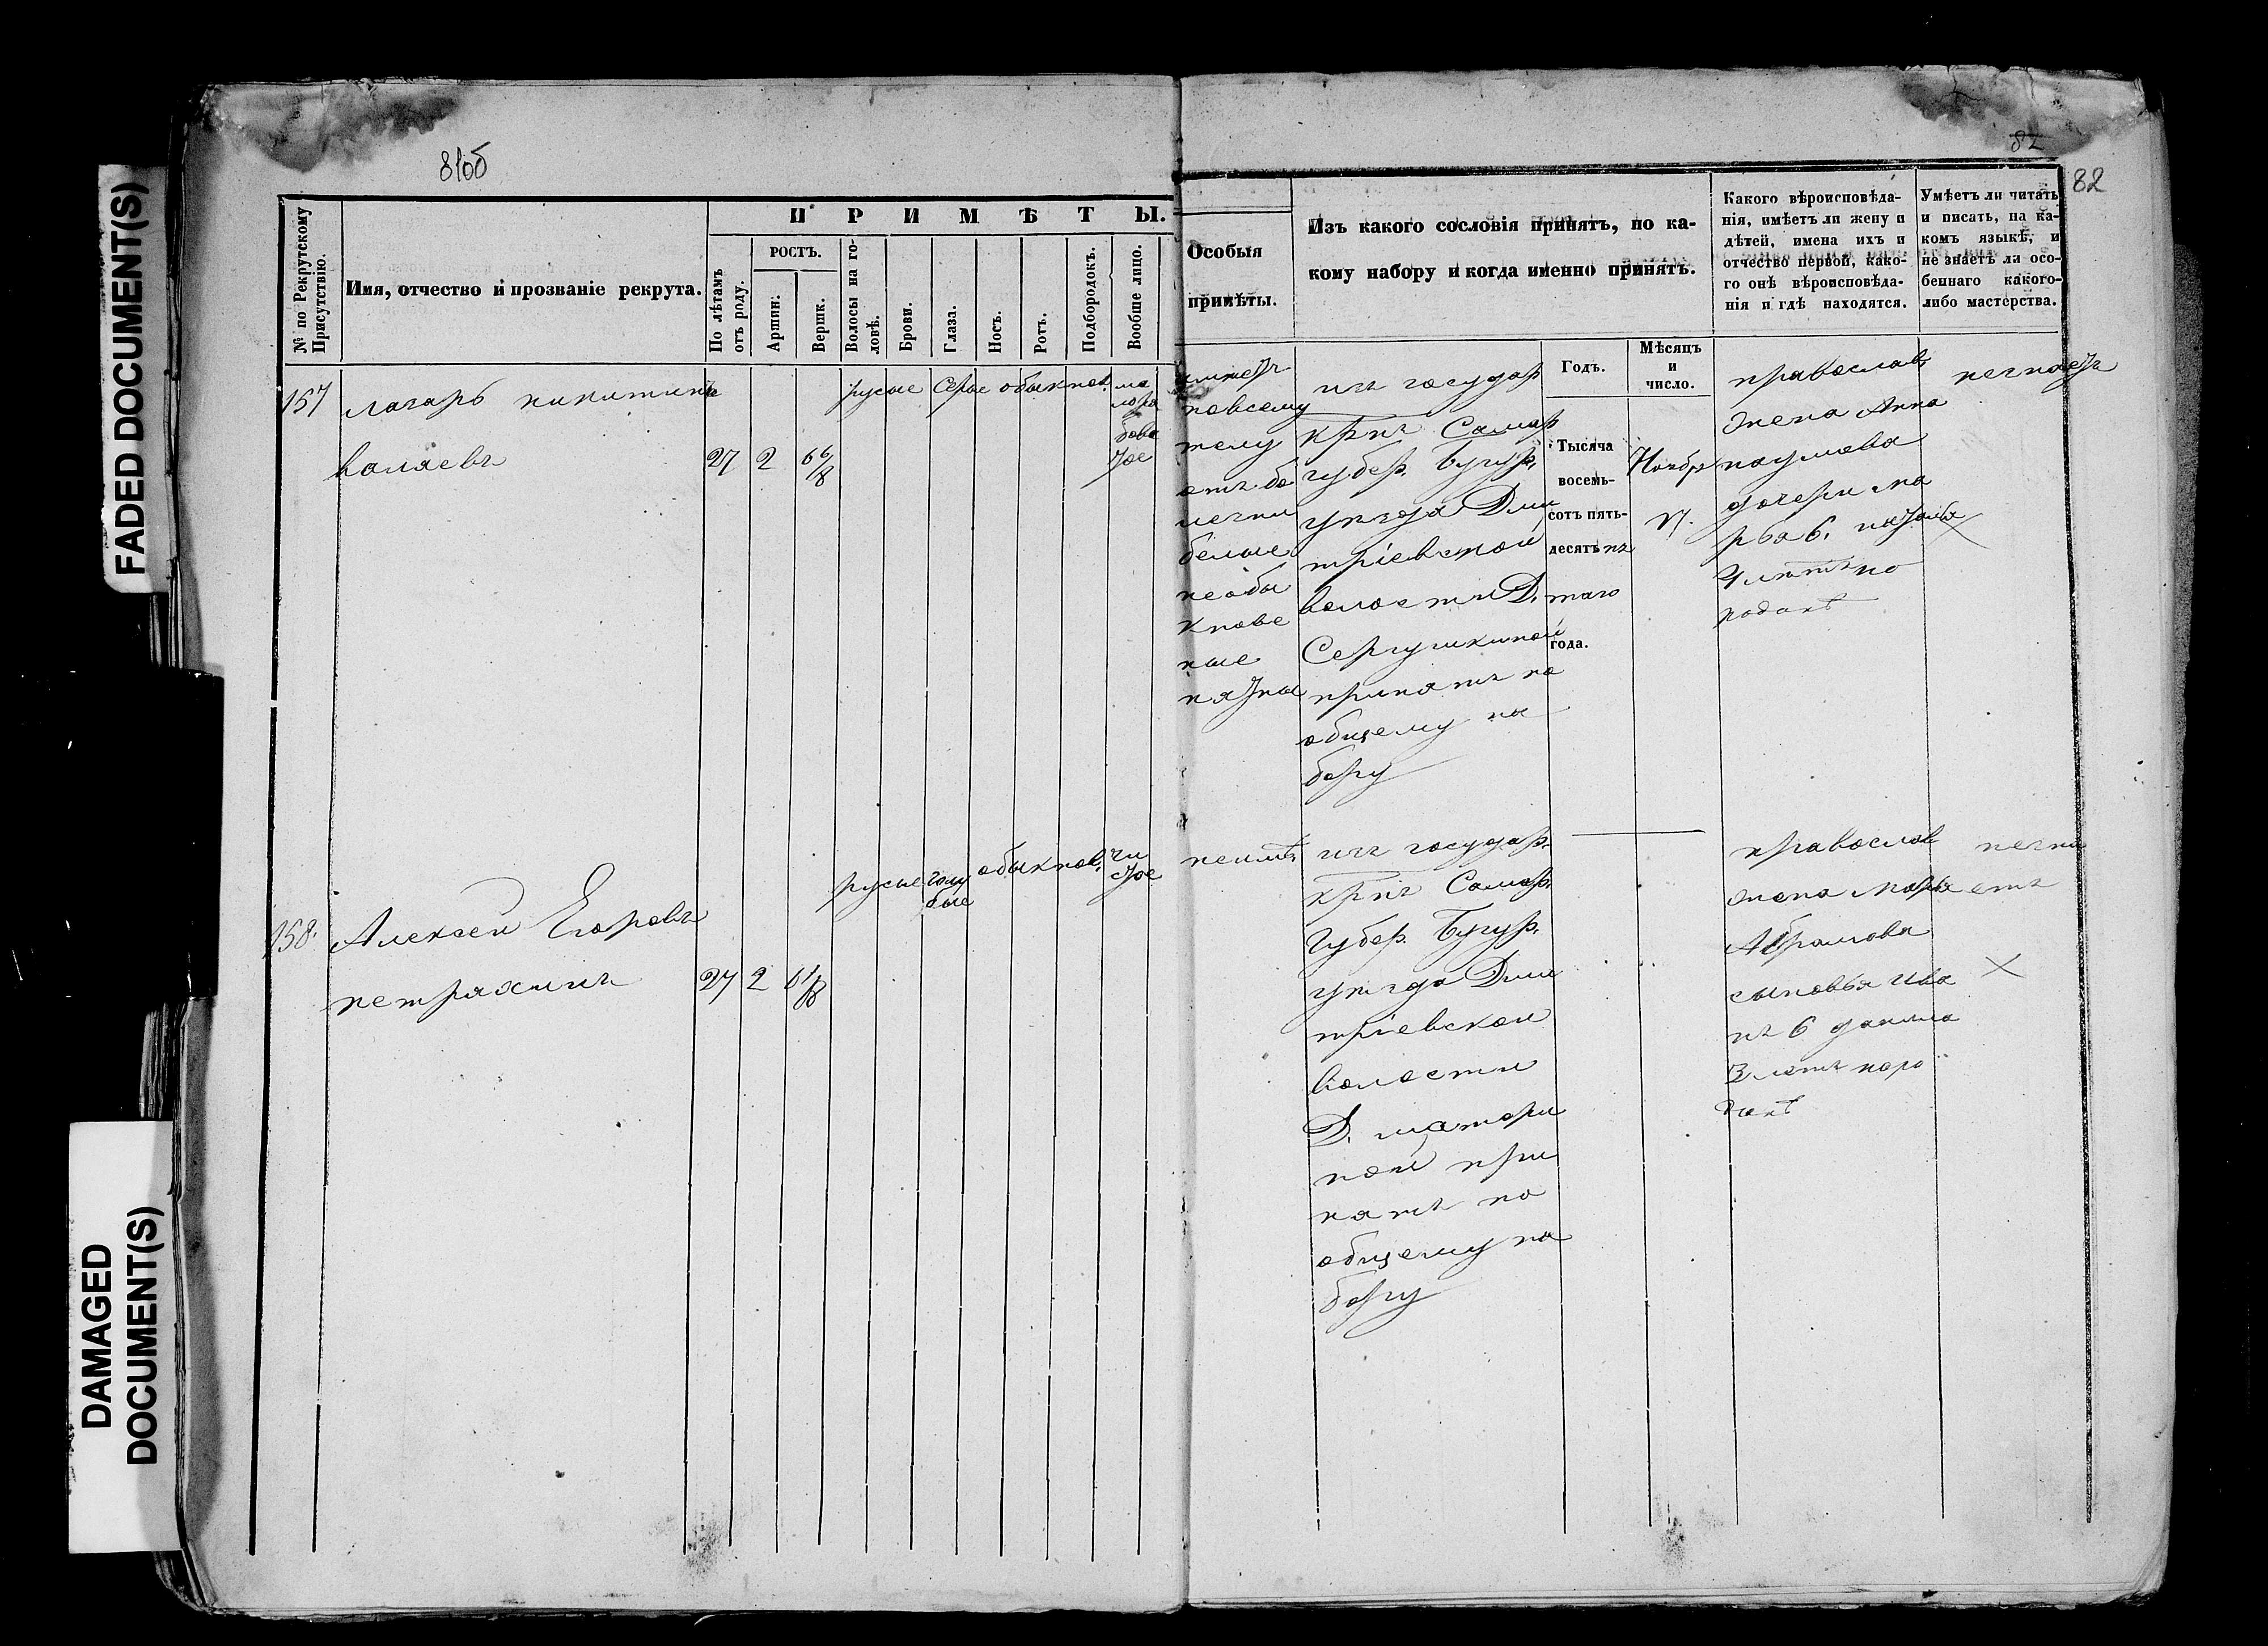 FADED DOCUMENT(S)
DAMAGED
DOCUMENT(S)
81об
82
82
№ по Рекрутскому
Присутствію.
Имя, отчество и прозваніе рекрута.
П Р И М Ѣ Т Ы.
По лѣтамъ
отъ роду.
РОСТЪ.
Аршин:
Вершк.
Волосы на го-
ловѣ.
Брови.
Глаза.
Носъ.
Ротъ.
Подбородокъ.
Вообще лицо.
Особыя
примѣты.
Изъ какого сословія принятъ, по ка-
кому набору и когда именно принятъ.
Какого вѣроисповѣда-
нія, имѣетъ ли жену и
дѣтей, имена ихъ и
отчество первой, како-
го онѣ вѣроисповѣда-
нія и гдѣ находятся.
Умѣетъ ли читать
и писать, на ка-
комъ языкѣ, и
не знаетъ ли осо-
беннаго какого-
либо мастерства.
Годъ.
Мѣсяцъ
и
число.
157
лазарь никитинъ
валяевъ
27
2
6 6/8
русые
серые
обыкнов.
имеетъ
повсему
телу
белые
необы
кнове
ные
пятны
изъ государ
крпъ Самар
губер. Бугур.
уезда Дми
тріевской
волости Д.
Сергушкиной
принятъ по
общему на
бору
Тысяча
восемь-
сотъ пять-
десятъ пя
таго
года.
Ноябр
православ
жена Анна
наумова
дочери ма
рья 6. наталья
4 летъ на
незнаетъ
158.
Алексей Егоровъ
петряхинъ
27
2
6 1/8
русые
голу
бые
обыкнов.
чи
стое
неимѣ
изъ государ.
крпъ Самар.
Губер. Бугур.
уезда Дми
тріевской
волости
Д.
ной при
нятъ по
общему на
бору
православ
жена Марья
Абрамова
сыновья ива
нъ 6 данила
3 летъ наро
динѣ
незна
етъ